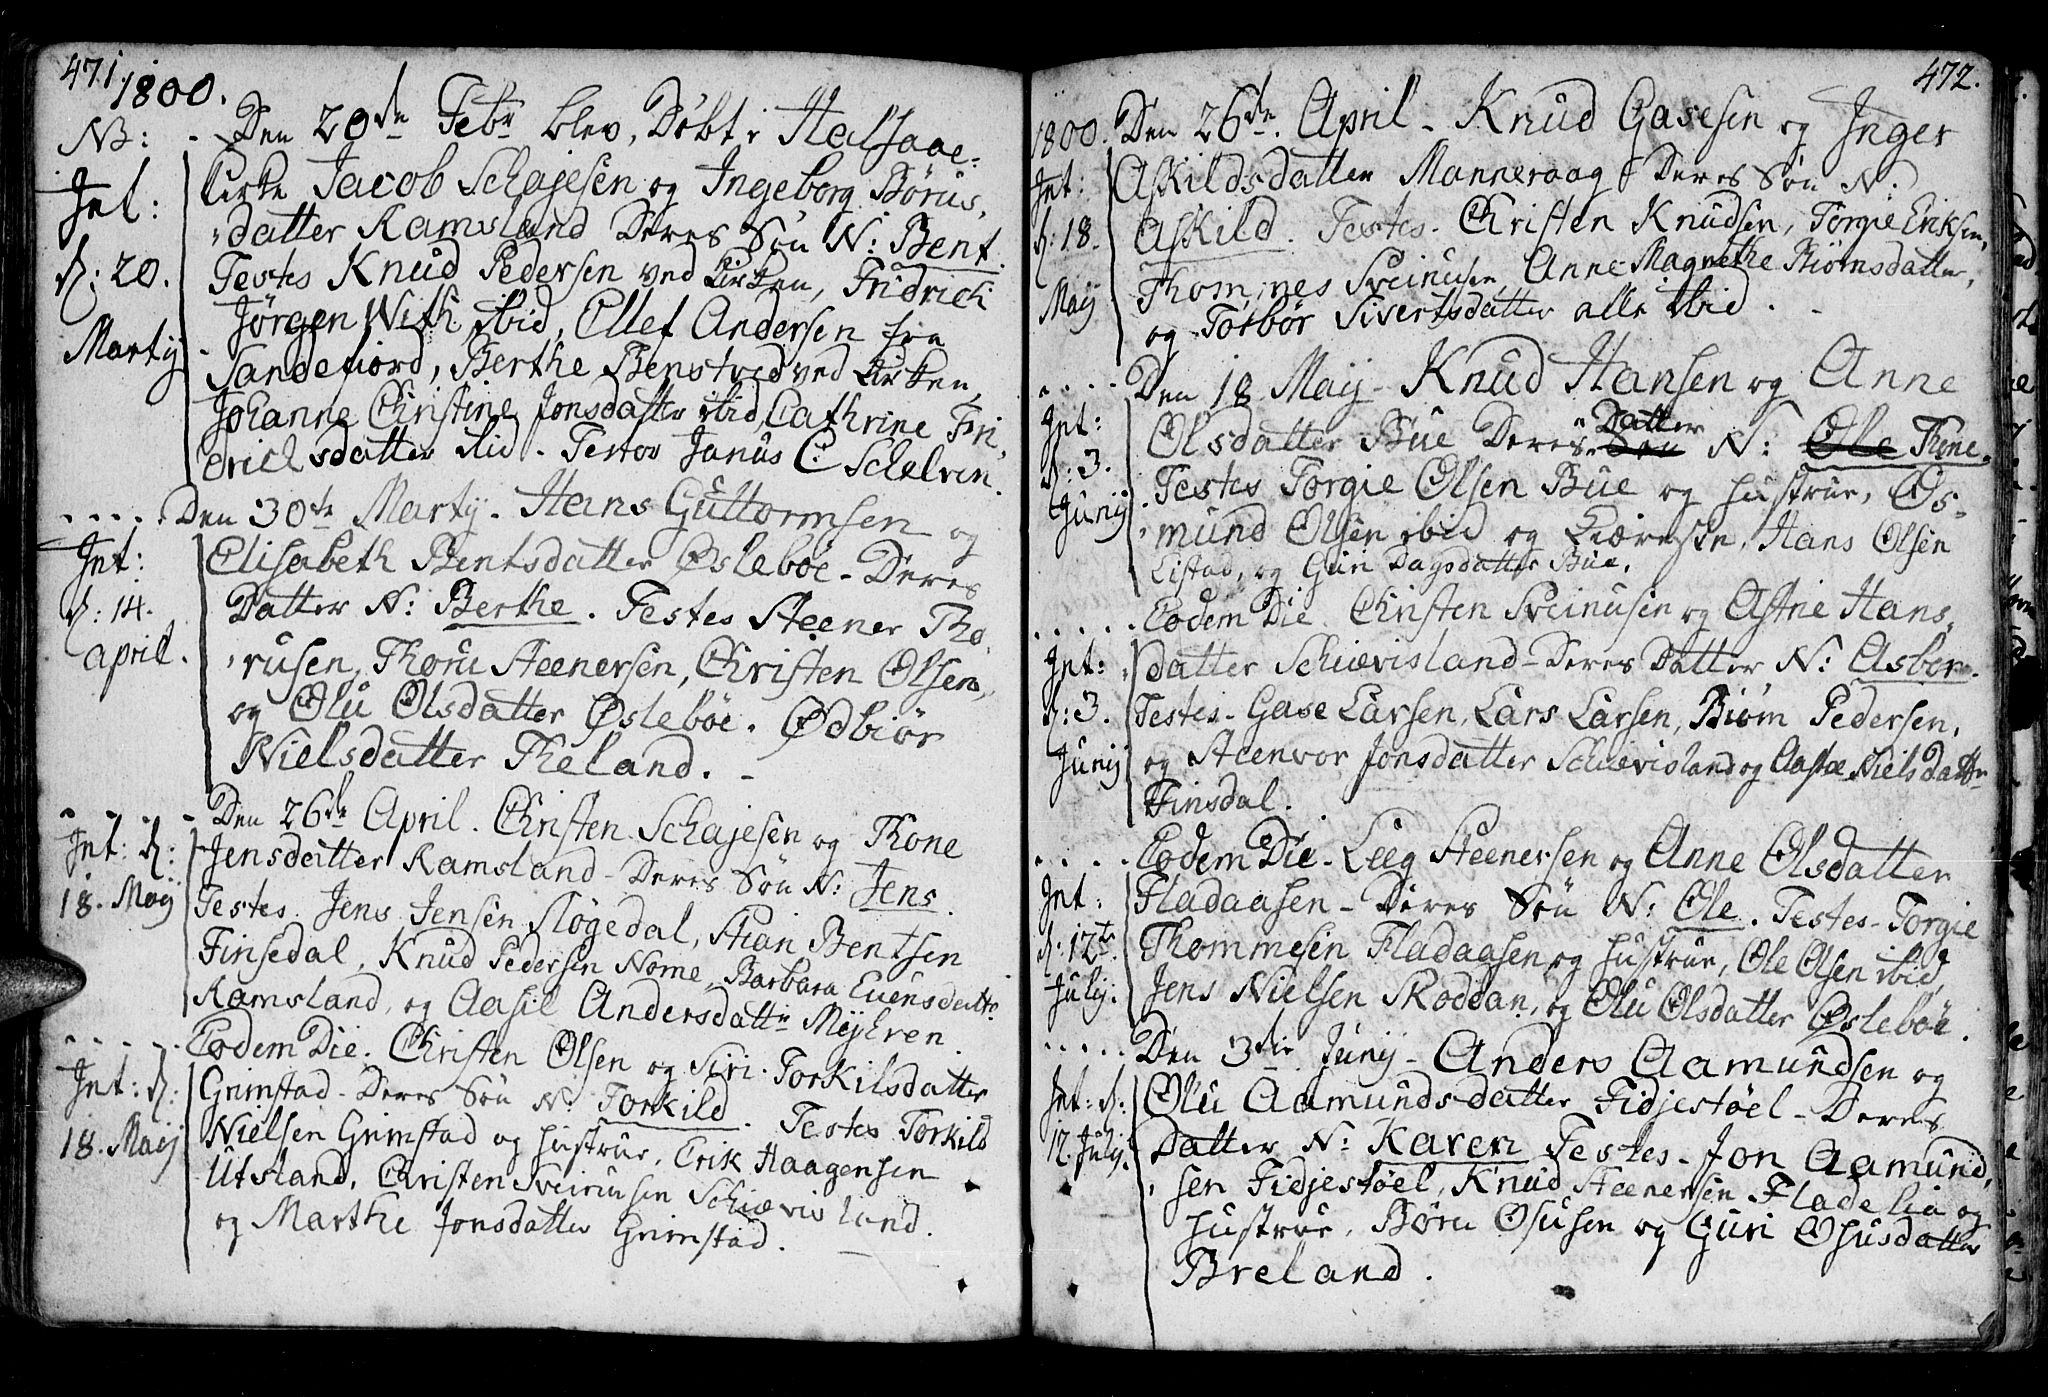 471.
1800.
NB: - Den 20de Febr blev, Døbt i Helsaae-
kirke Jacob Schajesen og Ingeborg Børus,
Int: datter Ramsland Deres Søn N: Bent.
d: 20. Testes Knud Pedersen ved kirken, Fridrich
Jørgen With ibid, Ellef Andersen fra
Martij Sandefiord, Berthe Benstved ved kirken,
Johanne Christine Jonsdatter ibid, Cathrine Fri,
drichsdatter ibid. Testor Janus C: Schelven.
Den 30te Martij. Hans Guttormsen og
Int: Elisabeth Bentsdatter Øslebøe - Deres
d: 14. Datter N: Berthe. Testes Steener Tho,
April. rusen, Thoru Steenersen, Christen Olsen,
og Olu Olsdatter Øslebøe. Ødbiør
Nielsdatter Theland. -
Den 26de April. Christen Schajesen og Thone
Int: d: Jensdatter Ramsland - Deres Søn N: Jens.
18. Maij Testes. Jens Jensen Sløgedal, Stian Bentsen
Finsedal, Knud Pedersen Nome, Barbara Evensdattr
Ramsland, og Aasil Andersdattr Mejhren.
Eodem Die. Christen Olsen og Siri Torkilsdatter
Int: d: Grimstad - Deres Søn N: Torkild. Testes Torkild
18. Maij Nielsen Grimstad og Hustrue, Erik Haagensen
Utsland, Christen Sveinusen Schiævisland.
og Marthe Jonsdatter Grimstad.
472.
1800. Den 26de April - Knud Gasesen og Inger
Int: Askildsdatter Manneraag Deres Søn N.
d: 18. Askild. Testes. Christen Knudsen, Torgie Eriksen,
Maij Thommes Sveinusen, Anne Magrethe Biørnsdatter,
og Torbør Sivertsdatter alle ibid.
Den 18 Maij - Knud Hansen og Anne
Int: Olsdatter Bue Deres Søn Datter N: Ole Thone.
d: 3. Testes Torgie Olsen Bue og Hustrue, Os-
Junij mund Olsen ibid og Kiæreste, Hans Olsen
Listad, og Guri Dagsdatter Bue.
Eodem Die. Christen Sveinusen og Astrie Hans,
Int: datter Schiævisland - Deres Datter N: Asbor.
d: 3. Testes - Gase Larsen, Lars Larsen, Biørn Pedersen,
Junij og Steenvor Jonsdatter Schiævisland og Aaste Nielsdattr
Finsdal.
Eodem Die - Leeg Steenersen og Anne Olsdatter
Int: Fladaasen - Deres Søn N: Ole. Testes - Torgie
d: 12te Thommesen Fladaasen og Hustrue, Ole Olsen ibid,
Julij: Jens Nielsen Skoddan, og Olu Olsdatter Øslebøe.
Den 3die Junij - Anders Aamundsen og
Int: d: Olu Aamundsdatter Fidjestøel - Deres
12. Julij. Datter N: Karen Testes - Jon Aamund,
sen Fidjestøel, Knud Steenersen Fladelia og
Hustrue, Børu Osusen og Guri Osusdatter
Breland.